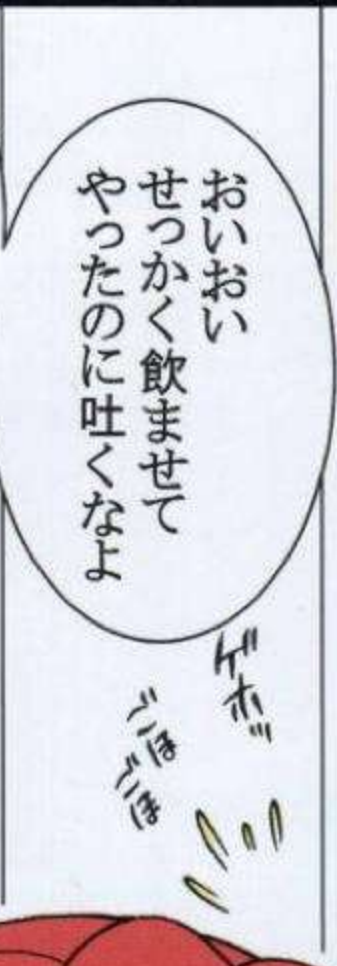 おいおい
せっかく飲ませて
やったのに吐くなよ
ゲホッ
ごほ
ごほ